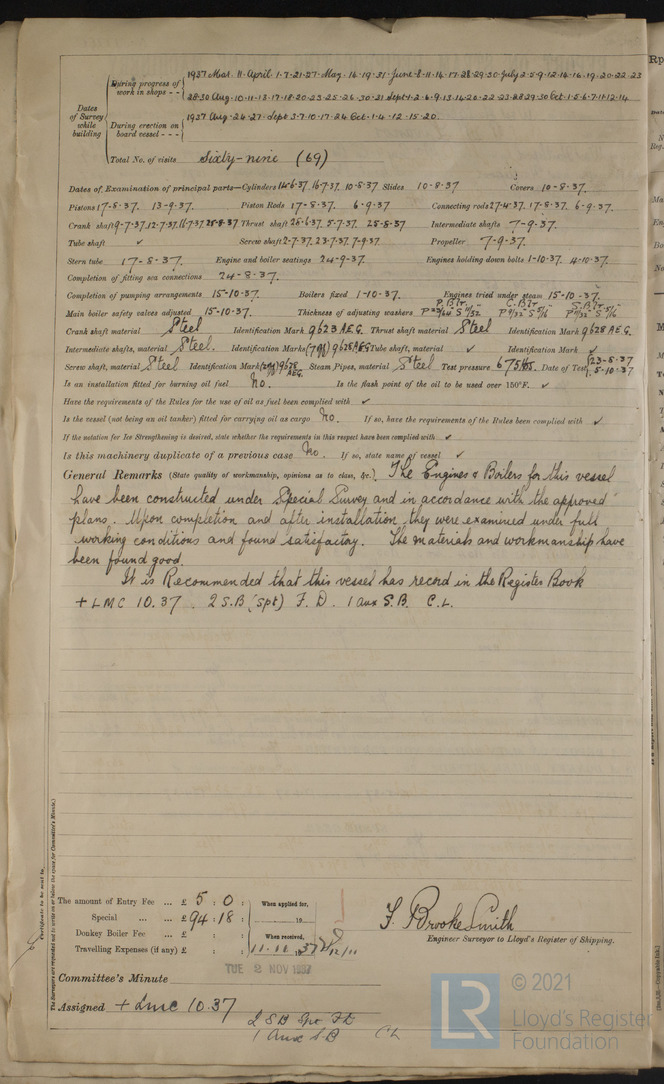 During progress of work in shops - - 1937 Mar. 11. April. 1. 7. 21. 27. May. 14. 19. 31. June. 8. 11. 14. 17. 28. 29. 30. July 2. 5. 9. 12. 14. 16. 19. 20. 22. 23
28. 30 Aug. 10. 11. 13. 17. 18. 20. 23. 25. 26. 30. 31 Sept. 1. 2. 6. 9. 13. 14. 20. 22. 23. 28. 29. 30 Oct. 1. 5. 6. 7. 11. 12. 14.
Dates of Survey while building
During erection on board vessel - - - 1937 Aug. 24. 27. Sept 3. 7. 10. 17. 24 Oct. 1. 4. 12. 15. 20.
Total No. of visits Sixty-nine (69)
Dates of Examination of principal parts—Cylinders 14-6-37. 16-7-37. 10-8-37 Slides 10-8-37 Covers 10-8-37.
Pistons 17-8-37. 13-9-37. Piston Rods 17-8-37. 6-9-37 Connecting rods 27-4-37. 17-8-37. 6-9-37.
Crank shaft 9-7-37. 12-7-37. 16-7-37. 25-8-37 Thrust shaft 28-6-37. 5-7-37. 25-8-37 Intermediate shafts 7-9-37.
Tube shaft ✓ Screw shaft 2-7-37. 23-7-37. 7-9-37. Propeller 7-9-37.
Stern tube 17-8-37. Engine and boiler seatings 24-9-37. Engines holding down bolts 1-10-37. 4-10-37.
Completion of fitting sea connections 24-8-37.
Completion of pumping arrangements 15-10-37. Boilers fixed 1-10-37. Engines tried under steam 15-10-37.
Main boiler safety valves adjusted 15-10-37. Thickness of adjusting washers
Crank shaft material Steel Identification Mark 9623 AEG. Thrust shaft material Steel Identification Mark 9628 AEG.
Intermediate shafts, material Steel. Identification Marks 9628 AEG Tube shaft, material ✓ Identification Mark ✓
Screw shaft, material Steel Identification Mark 9628 AEG. Steam Pipes, material Steel Test pressure 675 lbs. Date of Test 23-8-37 5-10-37
Is an installation fitted for burning oil fuel No. Is the flash point of the oil to be used over 150°F. ✓
Have the requirements of the Rules for the use of oil as fuel been complied with ✓
Is the vessel (not being an oil tanker) fitted for carrying oil as cargo No. If so, have the requirements of the Rules been complied with ✓
If the notation for Ice Strengthening is desired, state whether the requirements in this respect have been complied with ✓
Is this machinery duplicate of a previous case No. If so, state name of vessel ✓
General Remarks (State quality of workmanship, opinions as to class, &c.) The Engines & Boilers for this vessel
have been constructed under Special Survey and in accordance with the approved
plans. Upon completion and after installation they were examined under full
working conditions and found satisfactory. The materials and workmanship have
been found good.
It is Recommended that this vessel has record in the Register Book
+ LMC 10.37. 2 S.B (Spt) F.D. 1 aux S.B. C.L.
The amount of Entry Fee ... £ 5 : 0 : When applied for,
Special ... ... £ 94 : 18 : 19
Donkey Boiler Fee ... £ : : When received,
Travelling Expenses (if any) £ : : 11.12.1937
F. Brooke Smith
Engineer Surveyor to Lloyd's Register of Shipping.
TUE 2 NOV 1937
Committee's Minute
Assigned + LMC 10.37
2 SB Spt FD
1 Aux S.B CL
© 2021
LR Lloyd's Register
Foundation